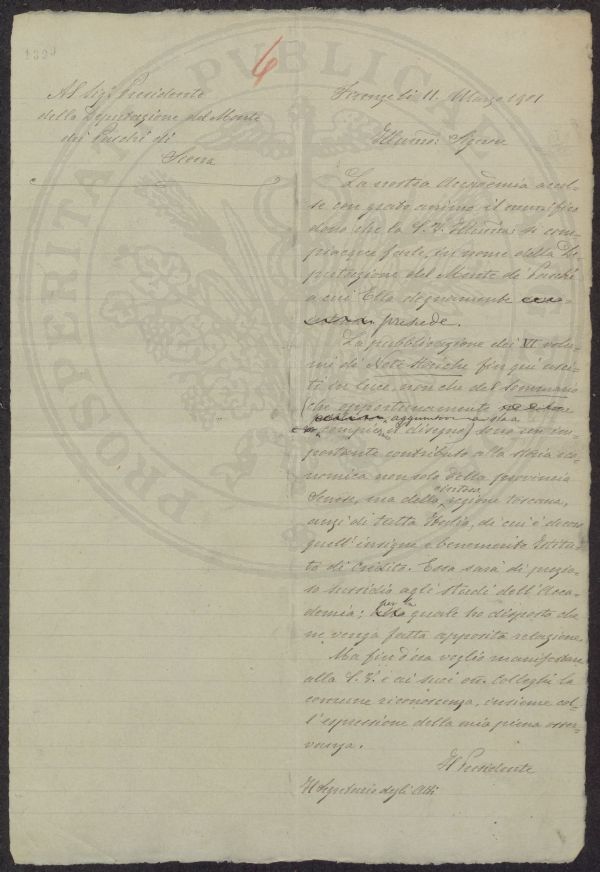 1323
6
Al Sig. Presidente
della Deputazione del Monte
dei Paschi di
Siena
Firenze li 11. Marzo 1901
Illmo: Signore
La nostra Accademia accol-
se con grato animo il munifico
dono che la S. V. Illma: si com-
piacque farle, in nome della De-
putazione del Monte de' Paschi
a cui Ella degnamente
presiede.
La pubblicazione dei VI volu-
mi di Note Storiche fin qui usci-
ti in luce, non che del Sommario
(che opportunamente
aggiuntovi
compie il disegno) sono un im-
portante contributo a la storia eco-
nomica non solo della provincia
Senese, ma della regione toscana,
anzi di tutta Italia, di cui è decoro
quell' insigne e benemerito Istitu-
to di Credito. Essa sarà di prezio-
so sussidio agli studi dell' Acca-
demia; per la quale ho disposto che
ne venga fatta apposita relazione.
Ma fin d'ora voglio manifestare
alla S. V. e ai suoi on. Colleghi la
comune riconoscenza, insieme col-
l' espressione della mia piena osser-
vanza.
Il Presidente
Il Segretario degli Atti
PROSPERITATI PUBLICAE